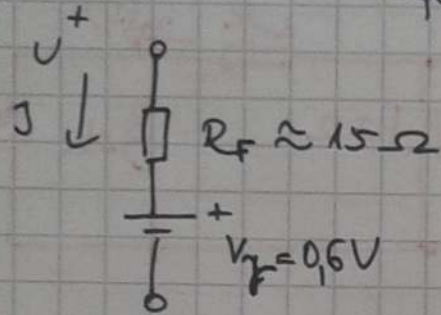 U +
J
R_F ≈ 15 Ω
+
V_γ = 0,6V